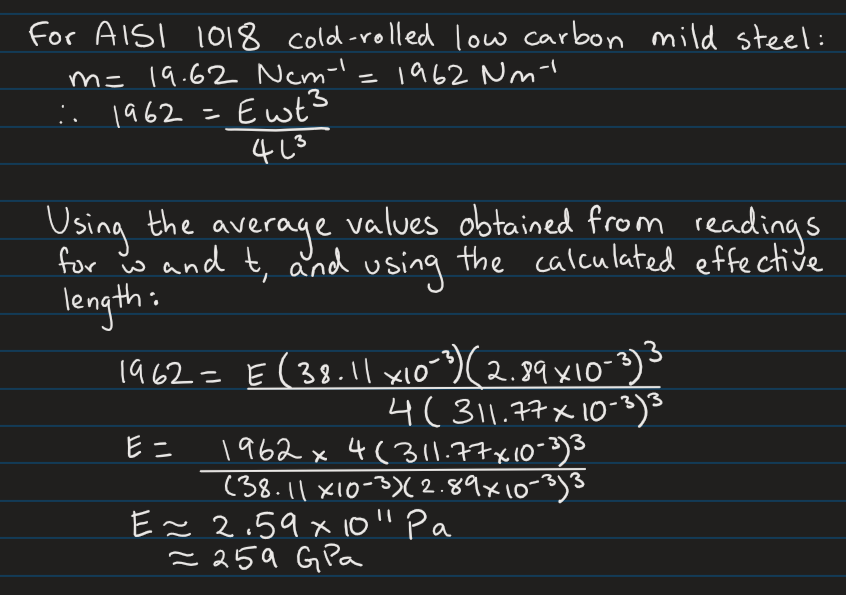 For AISI 1018 cold-rolled low carbon mild steel:
m= 19.62 Ncm⁻¹ = 1962 Nm⁻¹
∴ 1962 = Ewt³
4L³
Using the average values obtained from readings
for w and t, and using the calculated effective
length:
1962 = E(38.11 ×10⁻³)(2.89×10⁻³)³
4(311.77×10⁻³)³
E = 1962 × 4(311.77×10⁻³)³
(38.11 ×10⁻³)(2.89×10⁻³)³
E ≈ 2.59 × 10¹¹ Pa
≈ 259 GPa